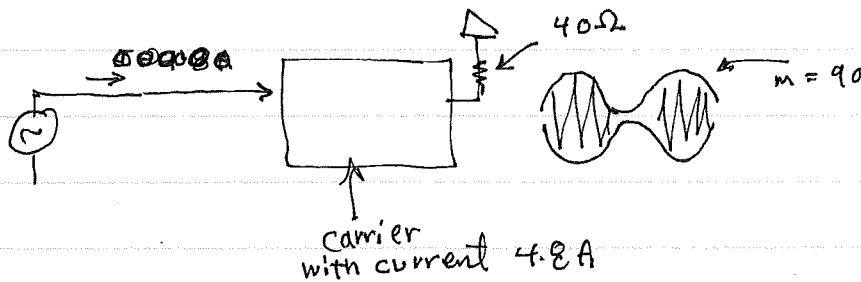 40Ω
m = 90
carrier
with current 4.8A